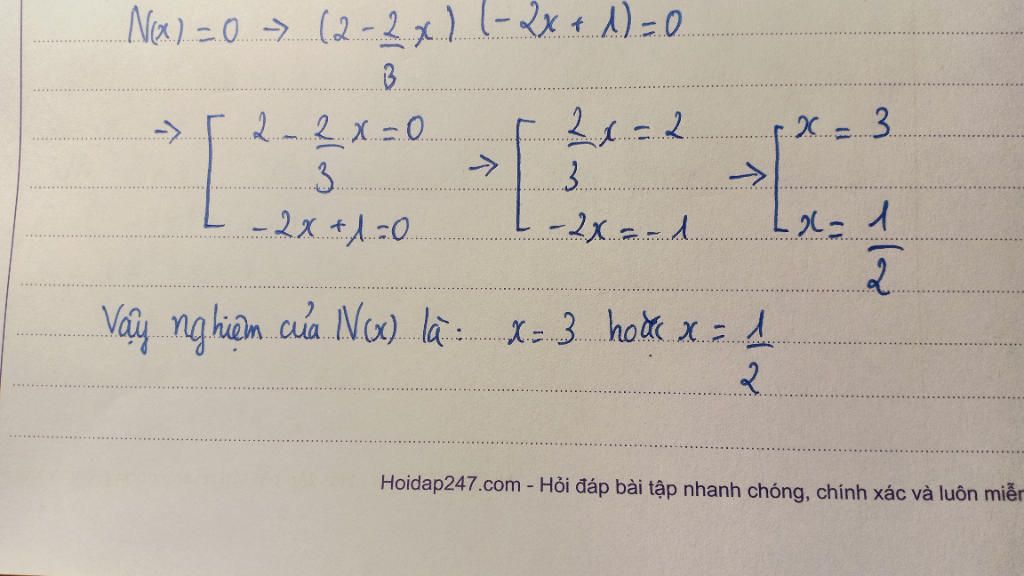 N(x) = 0 → (2 - 2/3 x) (-2x + 1) = 0
→ [ 2 - 2/3 x = 0 → [ 2/3 x = 2 → [ x = 3
-2x + 1 = 0 -2x = -1 x = 1/2
Vậy nghiệm của N(x) là: x = 3 hoặc x = 1/2
Hoidap247.com - Hỏi đáp bài tập nhanh chóng, chính xác và luôn miễn